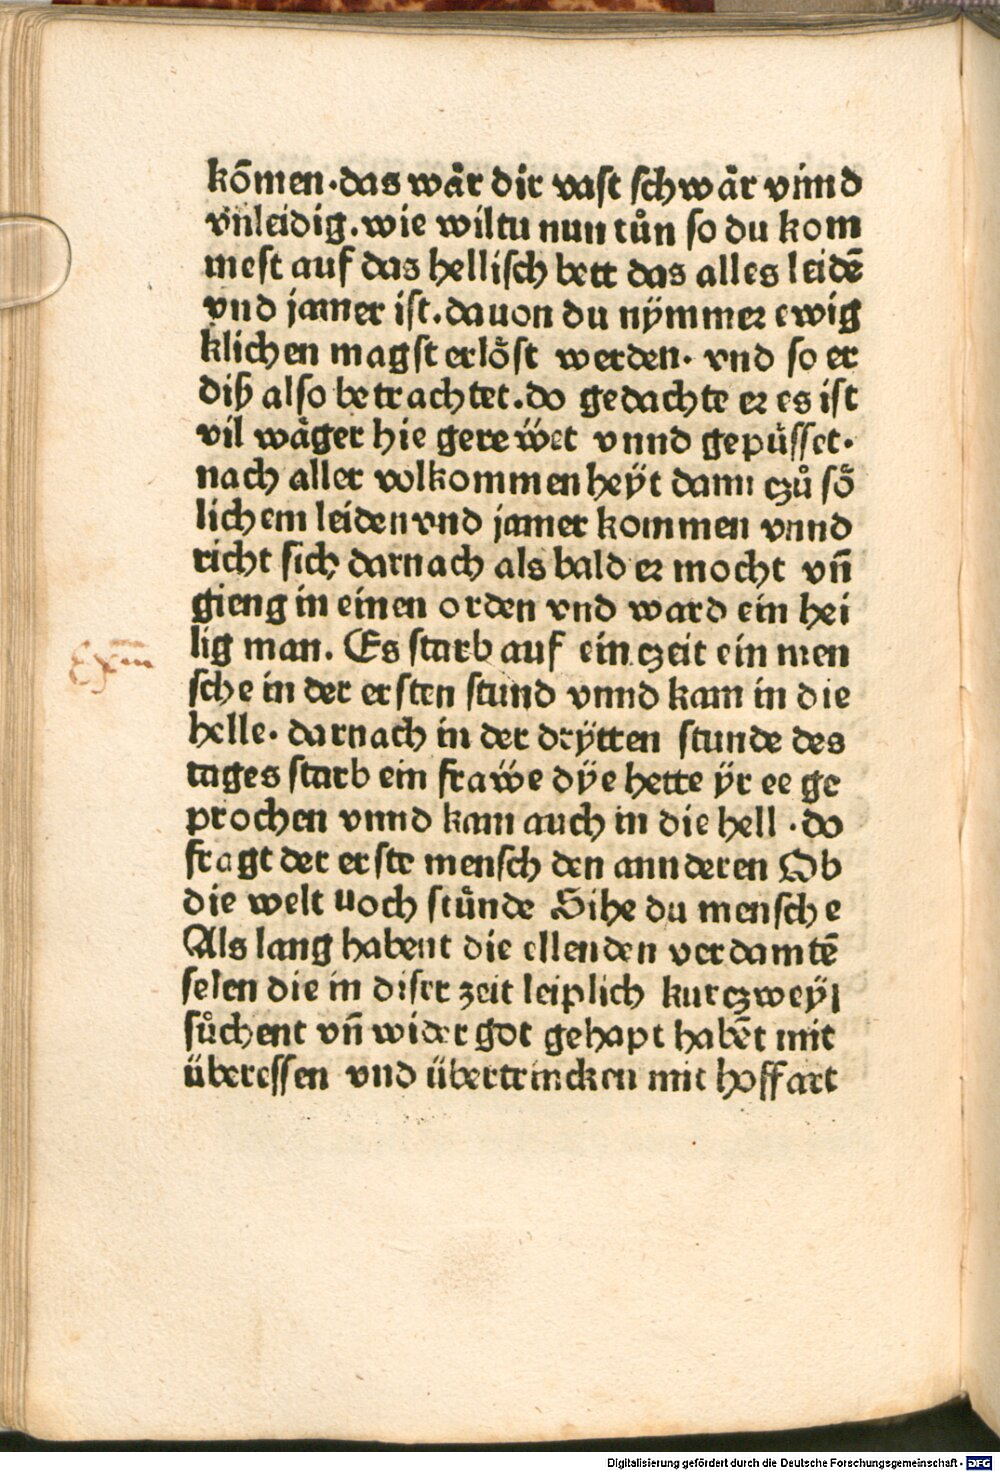 kōmen·das wår dir vast schwår vnnd
vnleidig.wie wiltu nun tůn so du kom
mest auf das hellisch bett das alles leidē
vnd jamer ist.dauon du nÿmmer ewig
klichen magst erlöst werden· vnd so er
diß also betrachtet.do gedachte er es ist
vil wåger hie gereẅet vnnd gepüsset·
nach aller volkommenheÿt dann czů sö
lichem leiden vnd jamer kommen vnnd
richt sich darnach als bald er mocht vn̄
gieng in einen orden vnd ward ein hei
lig man. Es starb auf ein czeit ein men
sche in der ersten stund vnnd kam in die
helle· darnach in der drÿtten stunde des
tages starb ein fraẅe dÿe hette ÿr ee ge
prochen vnnd kam auch in die hell ·do
fragt der erste mensch den annderen Ob
die welt noch stůnde Sihe du mensche
Als lang habent die ellenden verdamtē
selen die in diser zeit leiplich kurczweÿl
sůchent vn̄ wider got gehapt habēt mit
überessen vnd übertrincken mit hoffart
Digitalisierung gefördert durch die Deutsche Forschungsgemeinschaft - DFG